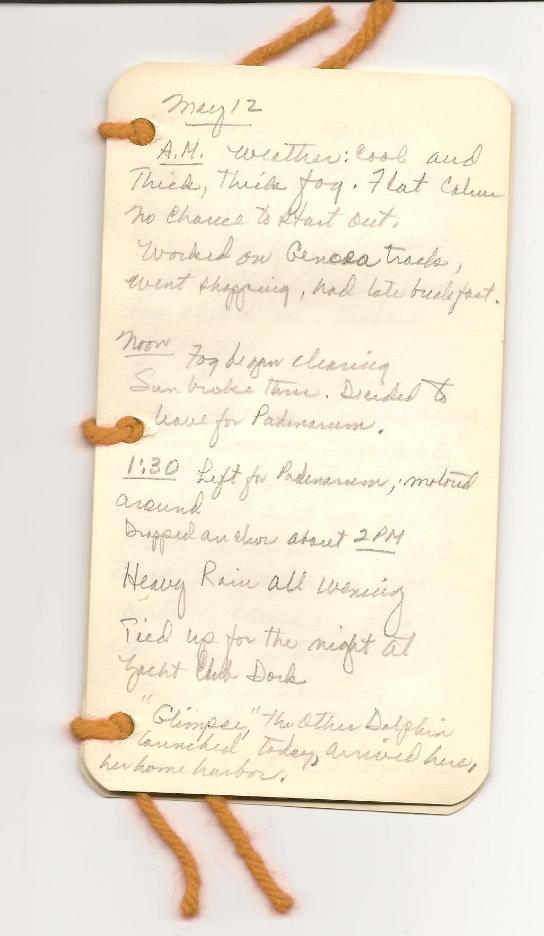 May 12
A.M. Weather: Cool and
Thick, Thick fog. Flat Calm
No Chance to Start out.
Worked on Genoa track,
went shopping, had late breakfast.
Noon Fog began clearing
Sun broke thru. Decided to
leave for Padanaram.
1:30 Left for Padanaram, motored
around
Dropped anchor about 2 PM
Heavy Rain all evening
Tied up for the night at
Yacht Club Dock
"Glimpse," the Other Dolphin
launched today, arrived here,
her home harbor.